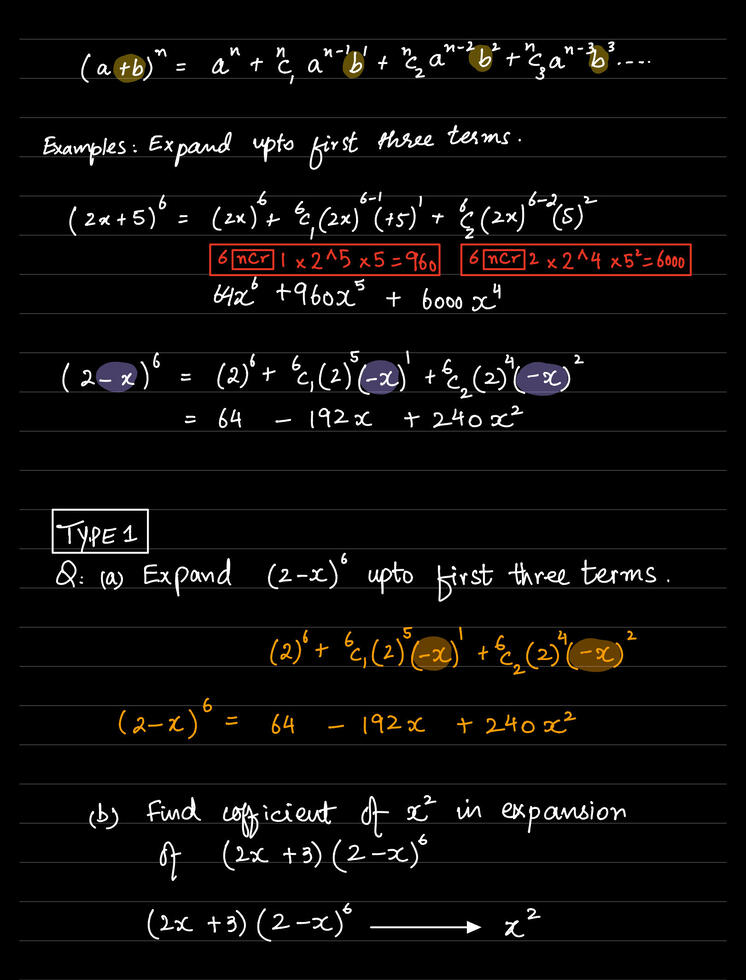 (a+b)ⁿ = aⁿ + ⁿC₁ aⁿ⁻¹b¹ + ⁿC₂ aⁿ⁻²b² + ⁿC₃ aⁿ⁻³b³ .....
Examples: Expand upto first three terms.
(2x+5)⁶ = (2x)⁶ + ⁶C₁(2x)⁶⁻¹(+5)¹ + ⁶C₂(2x)⁶⁻²(5)²
6 nCr 1 × 2^5 × 5 = 960 6 nCr 2 × 2^4 × 5² = 6000
64x⁶ + 960x⁵ + 6000x⁴
(2-x)⁶ = (2)⁶ + ⁶C₁(2)⁵(-x)¹ + ⁶C₂(2)⁴(-x)²
= 64 - 192x + 240x²
TYPE 1
Q: (a) Expand (2-x)⁶ upto first three terms.
(2)⁶ + ⁶C₁(2)⁵(-x)¹ + ⁶C₂(2)⁴(-x)²
(2-x)⁶ = 64 - 192x + 240x²
(b) Find cofficient of x² in expansion
of (2x+3)(2-x)⁶
(2x+3)(2-x)⁶ ⟶ x²